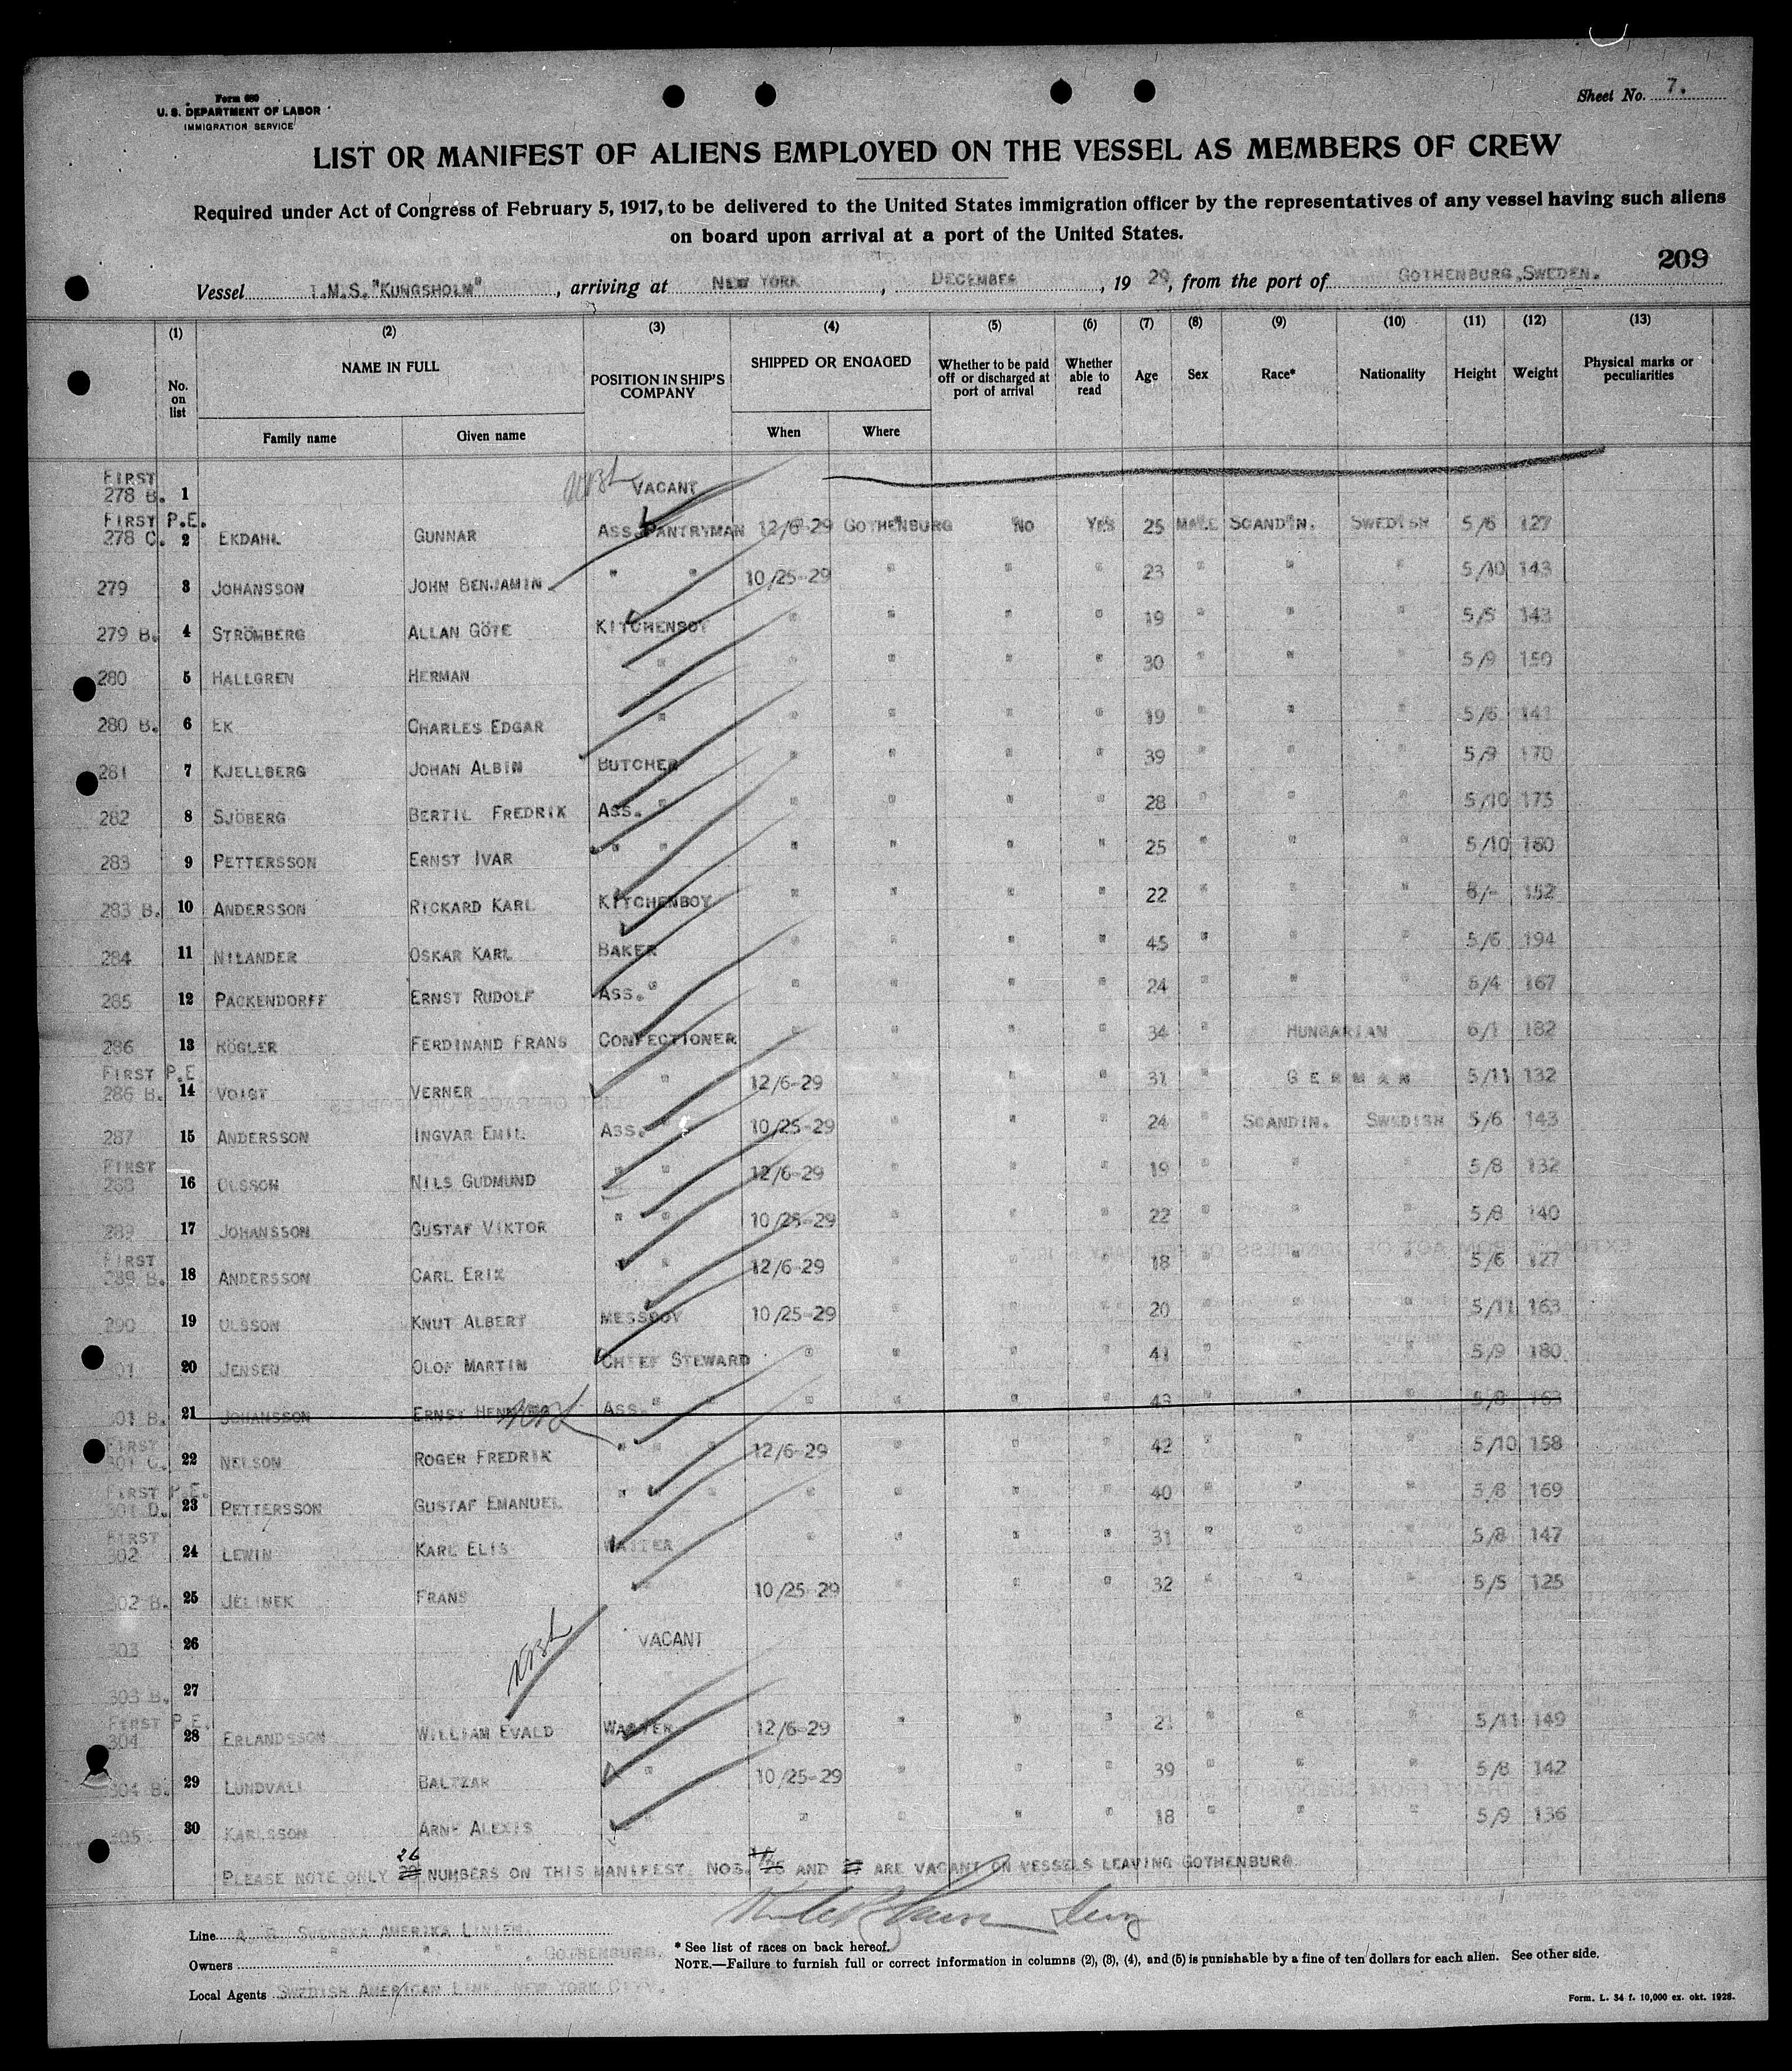 Form 680
U. S. DEPARTMENT OF LABOR
IMMIGRATION SERVICE
Sheet No. 7.
LIST OR MANIFEST OF ALIENS EMPLOYED ON THE VESSEL AS MEMBERS OF CREW
Required under Act of Congress of February 5, 1917, to be delivered to the United States immigration officer by the representatives of any vessel having such aliens
on board upon arrival at a port of the United States.
209
Vessel T.M.S."KUNGSHOLM", arriving at NEW YORK, DECEMBER, 19 29, from the port of GOTHENBURG,SWEDEN.
(1) (2) (3) (4) (5) (6) (7) (8) (9) (10) (11) (12) (13)
No. on list NAME IN FULL POSITION IN SHIP'S COMPANY SHIPPED OR ENGAGED Whether to be paid off or discharged at port of arrival Whether able to read Age Sex Race* Nationality Height Weight Physical marks or peculiarities
Family name Given name When Where
FIRST
278 B. 1 VACANT
FIRST P.E.
278 C. 2 EKDAHL GUNNAR ASS.PANTRYMAN 12/6-29 GOTHENBURG NO YES 25 MALE SCANDIN. SWEDISH 5/6 127
279 3 JOHANSSON JOHN BENJAMIN " " 10/25-29 " " " 23 " " " 5/10 143
279 B. 4 STRÖMBERG ALLAN GÖTE KITCHENBOY " " " " 19 " " " 5/5 143
280 5 HALLGREN HERMAN " " " " " 30 " " " 5/9 150
280 B. 6 EK CHARLES EDGAR " " " " " 19 " " " 5/6 141
281 7 KJELLBERG JOHAN ALBIN BUTCHER " " " " 39 " " " 5/9 170
282 8 SJÖBERG BERTIL FREDRIK ASS. " " " " " 28 " " " 5/10 175
283 9 PETTERSSON ERNST IVAR " " " " " " 25 " " " 5/10 160
283 B. 10 ANDERSSON RICKARD KARL KITCHENBOY " " " " 22 " " " 6/- 152
284 11 NILANDER OSKAR KARL BAKER " " " " 45 " " " 5/6 194
285 12 PACKENDORFF ERNST RUDOLF ASS. " " " " " 24 " " " 6/4 167
286 13 KÖGLER FERDINAND FRANS CONFECTIONER " " " " 34 " HUNGARIAN 6/1 182
FIRST P.E
286 B. 14 VOIGT VERNER " 12/6-29 " " " 31 " GERMAN 5/11 132
287 15 ANDERSSON INGVAR EMIL ASS. " 10/25-29 " " " 24 " SCANDIN. SWEDISH 5/6 143
FIRST
288 16 OLSSON NILS GUDMUND " " 12/6-29 " " " 19 " " " 5/8 132
289 17 JOHANSSON GUSTAF VIKTOR " " 10/25-29 " " " 22 " " " 5/8 140
FIRST
289 B. 18 ANDERSSON CARL ERIK " " 12/6-29 " " " 18 " " " 5/6 127
290 19 OLSSON KNUT ALBERT MESSBOY 10/25-29 " " " 20 " " " 5/11 163
301 20 JENSEN OLOF MARTIN CHIEF STEWARD " " " " 41 " " " 5/9 180
301 B. 21 JOHANSSON ERNST ASS. " " " " " " 43 " " " 5/8 163
FIRST
301 C. 22 NELSON ROGER FREDRIK " " " 12/6-29 " " " 42 " " " 5/10 158
FIRST P.E.
301 D. 23 PETTERSSON GUSTAF EMANUEL " " " " " " " 40 " " " 5/8 169
FIRST
302 24 LEWIN KARL ELIS WAITER " " " " 31 " " " 5/8 147
302 B. 25 JELINEK FRANS " 10/25-29 " " " 32 " " " 5/5 125
303 26 VACANT
303 B. 27 "
FIRST P.E.
304 28 ERLANDSSON WILLIAM EVALD WAITER 12/6-29 " " " 21 " " " 5/11 149
304 B. 29 LUNDVALL BALTZAR " 10/25-29 " " " 39 " " " 5/8 142
305 30 KARLSSON ARNE ALEXIS " " " " " 18 " " " 5/9 136
26
PLEASE NOTE ONLY NUMBERS ON THIS MANIFEST. NOS. AND ARE VACANT ON VESSELS LEAVING GOTHENBURG
Line A. B. SVENSKA AMERIKA LINIEN.
* See list of races on back hereof.
Owners " " " , GOTHENBURG.
NOTE.—Failure to furnish full or correct information in columns (2), (3), (4), and (5) is punishable by a fine of ten dollars for each alien. See other side.
Local Agents SWEDISH AMERICAN LINE, NEW YORK CITY.
Form. L. 34 f. 10,000 ex. okt. 1928.